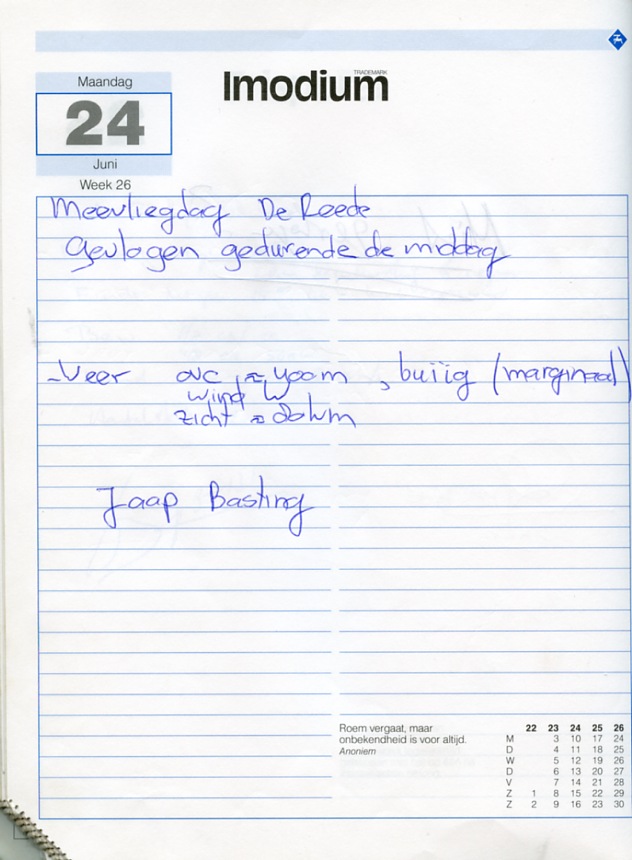 Imodium
TRADEMARK
Maandag
24
Juni
Week 26
Meevliegdag De Reede
Gevlogen gedurende de middag
-Weer ovc ≈ 400m, buiig (marginaal)
wind W
zicht ≈ 80km
Jaap Basting
Roem vergaat, maar
onbekendheid is voor altijd.
Anoniem
22 23 24 25 26
M 3 10 17 24
D 4 11 18 25
W 5 12 19 26
D 6 13 20 27
V 7 14 21 28
Z 1 8 15 22 29
Z 2 9 16 23 30